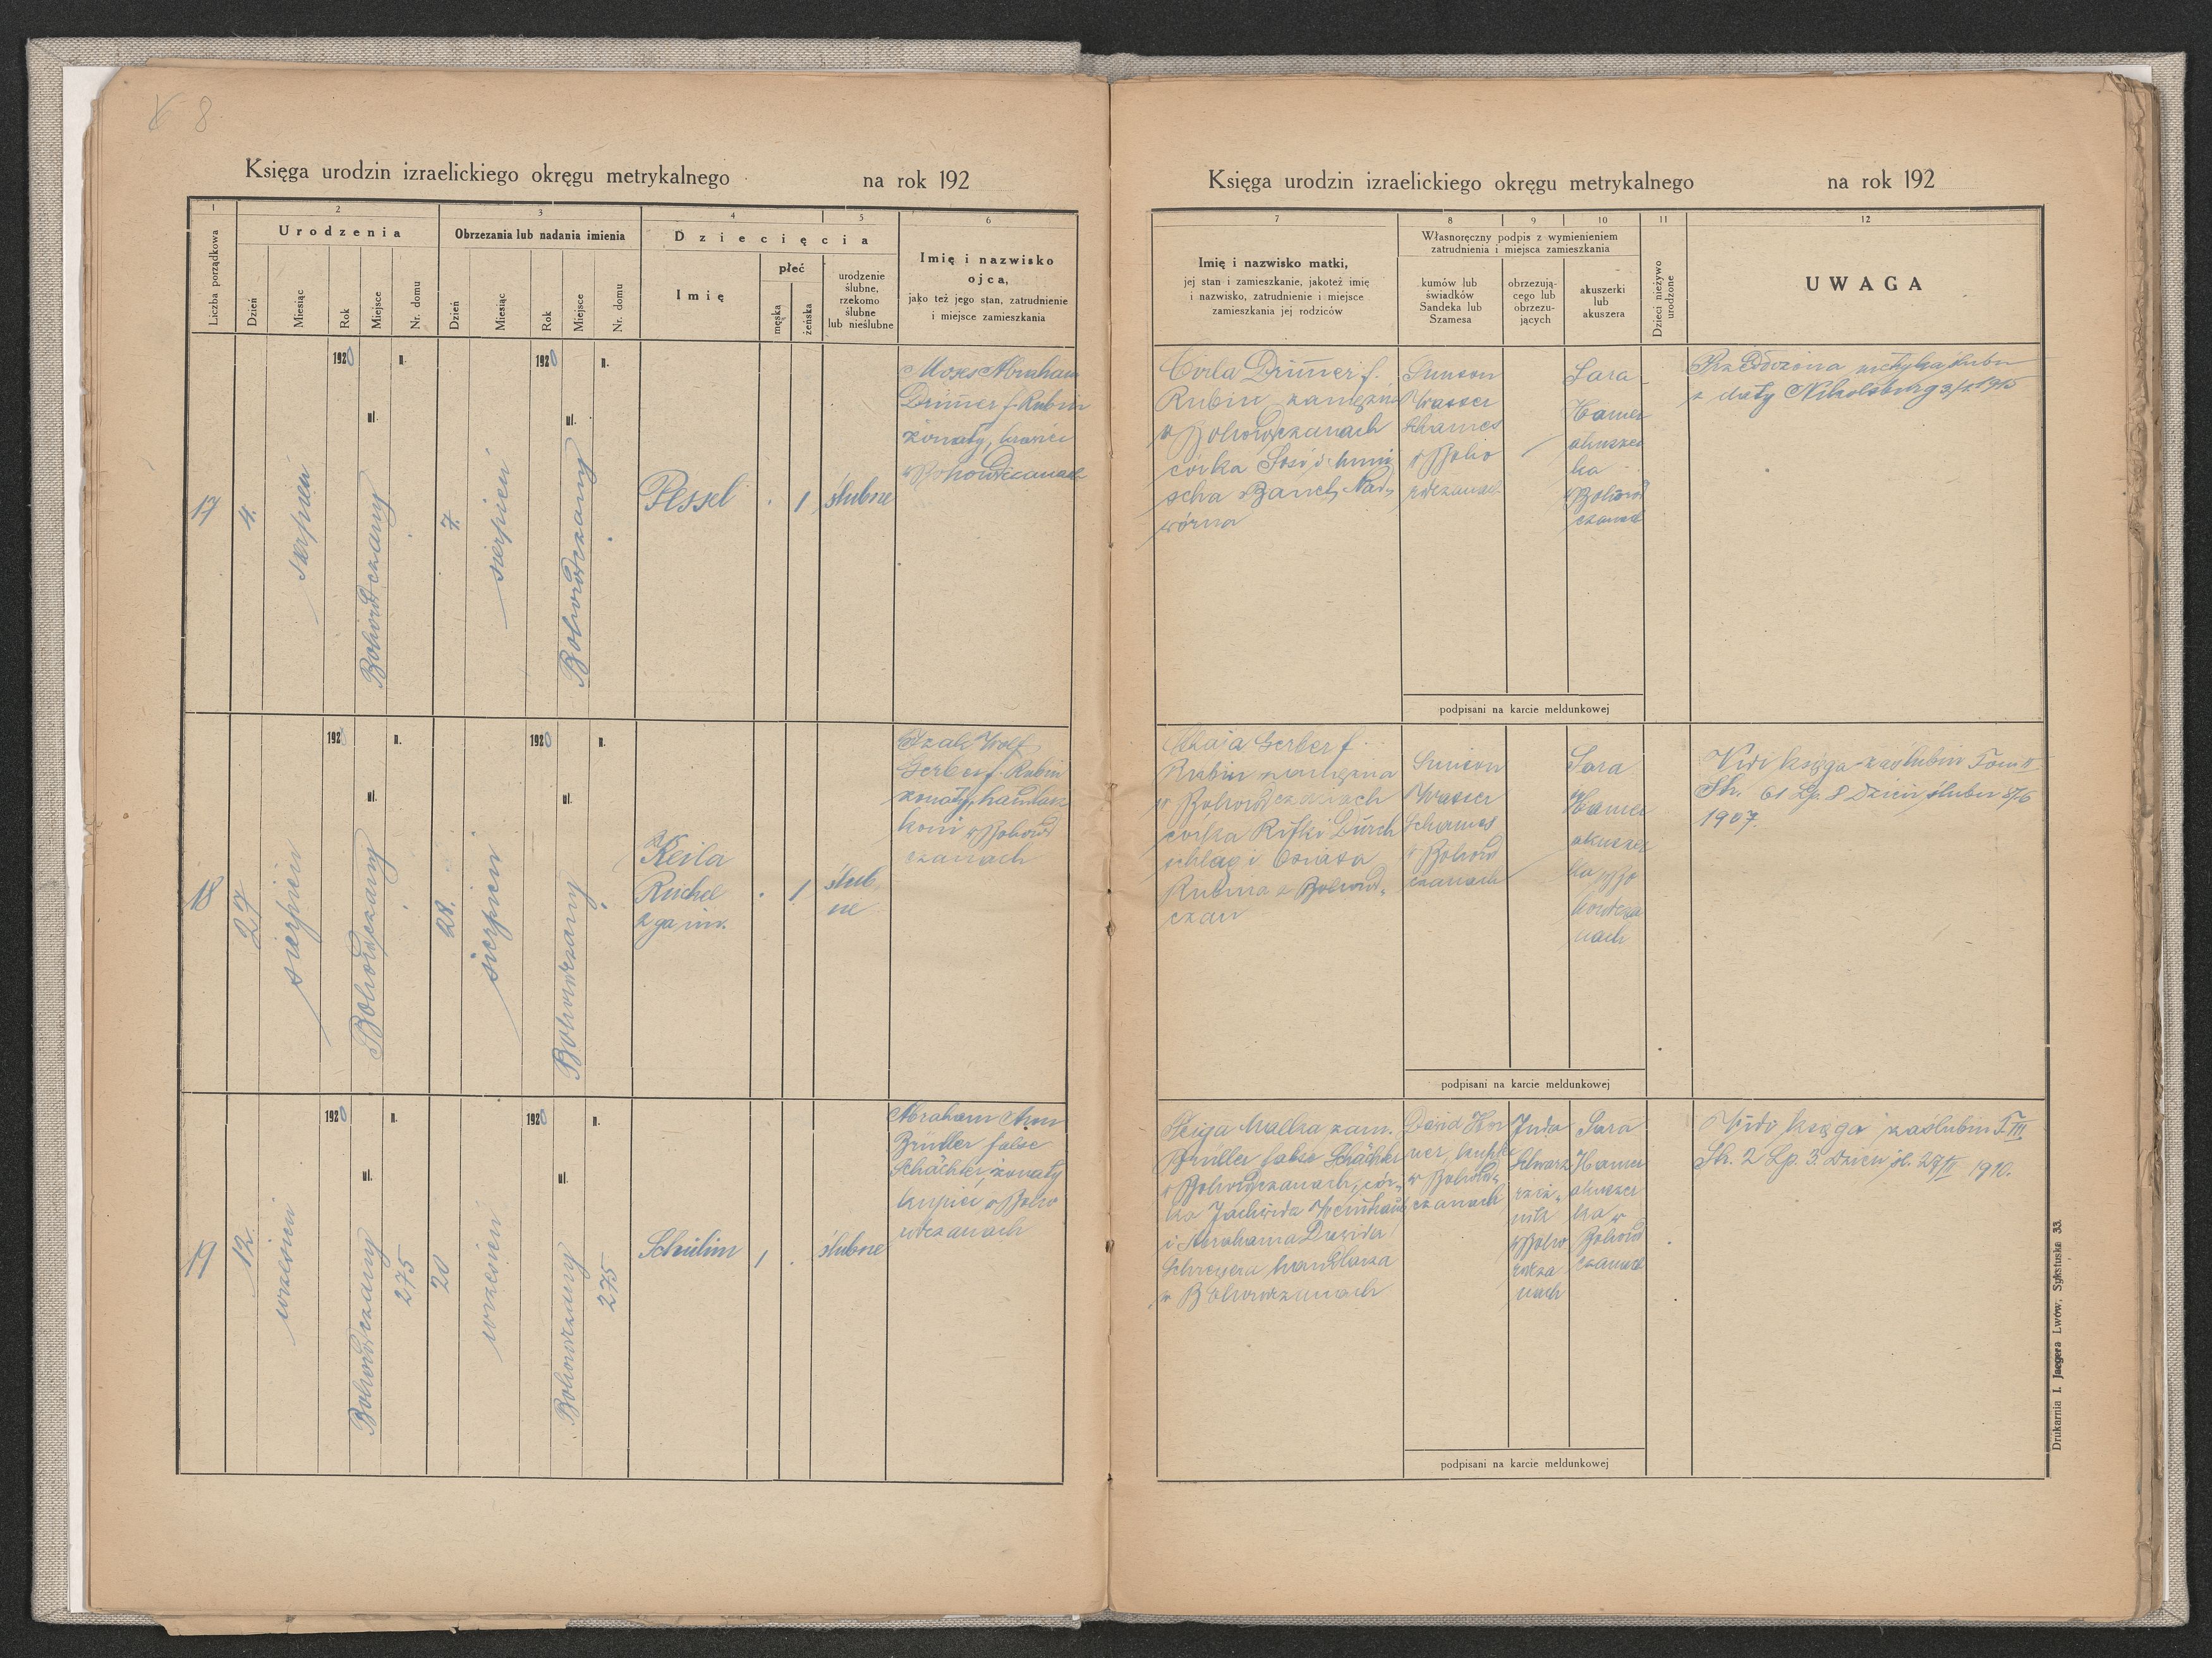 8
Księga urodzin izraelickiego okręgu metrykalnego na rok 192
1 2 3 4 5 6
Liczba porządkowa
Urodzenia
Dzień
Miesiąc
Rok
Miejsce
Nr. domu
Obrzezania lub nadania imienia
Dzień
Miesiąc
Rok
Miejsce
Nr. domu
Dziecięcia
Imię
płeć
męska
żeńska
urodzenie
ślubne,
rzekomo
ślubne
lub nieślubne
Imię i nazwisko
ojca,
jako też jego stan, zatrudnienie
i miejsce zamieszkania
17
4.
sierpień
1920
ul.
n.
Bohorodczany
7.
sierpień
1920
ul.
n.
Bohorodczany
Pessel
1
ślubne
Moses Abraham
Drimer f. Rubin
żonaty, krawiec
w Bohorodczanach
18
27
sierpień
192
ul.
n.
Bohorodczany
28.
sierpień
1920
ul.
n.
Bohorodczany
Keila
Ruchel
2ga im.
1
ślub
ne
Izak Wolf
Gerber f. Rubin
żonaty, handlarz
koni w Bohorod
czanach
19
12.
wrzesień
1920
ul.
n.
Bohorodczany
275
20
wrzesień
1920
ul.
n.
Bohorodczany
275
Schulim
1
ślubne
Abraham
false
Schächter, żonaty
kupiec w Boho
rodczanach
Księga urodzin izraelickiego okręgu metrykalnego na rok 192
7 8 9 10 11 12
Imię i nazwisko matki,
jej stan i zamieszkanie, jakoteż imię
i nazwisko, zatrudnienie i miejsce
zamieszkania jej rodziców
Własnoręczny podpis z wymienieniem
zatrudnienia i miejsca zamieszkania
kumów lub
świadków
Sandeka lub
Szamesa
obrzezują-
cego lub
obrzezu-
jących
akuszerki
lub
akuszera
Dzieci nieżywo
urodzone
UWAGA
Cirla Drimer f.
Rubin zamężna
w Bohorodczanach
córka
Nad-
wórna
Simson
Wasser
Schames
w Boho
rodczanach
Sara
Hamer
akuszer
ka
w Bohorod
czanach
Przedłożona metryka ślubu
z daty Nikolsburg 1915
podpisani na karcie meldunkowej
Chaja Gerber f.
Rubin zamężna
w Bohorodczanach
córka Rifki
i
Rubina z Bohorod-
czan
Simson
Wasser
Schames
w Bohorod
czanach
Sara
Hamer
akuszer
ka w Bo
horodcza
nach
Vidi księga zaślubin Tom II
Str. 61 Lp. 8 Dzień ślubu
1907.
podpisani na karcie meldunkowej
Feiga Malka zam.
false Schächter
w Bohorodczanach, cór-
ka
i Abrahama Dawida
Schreyera handlarza
w Bohorodczanach
Dawid
kupiec
w Bohorod-
czanach
Juda
Schwarz
rzeź-
nik
w Boho
rodcza
nach
Sara
Hamer
akuszer
ka w
Bohorod
czanach
Vidi księga zaślubin T. III
Str. 2 Lp. 3. Dzień śl. 1910.
podpisani na karcie meldunkowej
Drukarnia I. Jaegera Lwów, Sykstuska 33